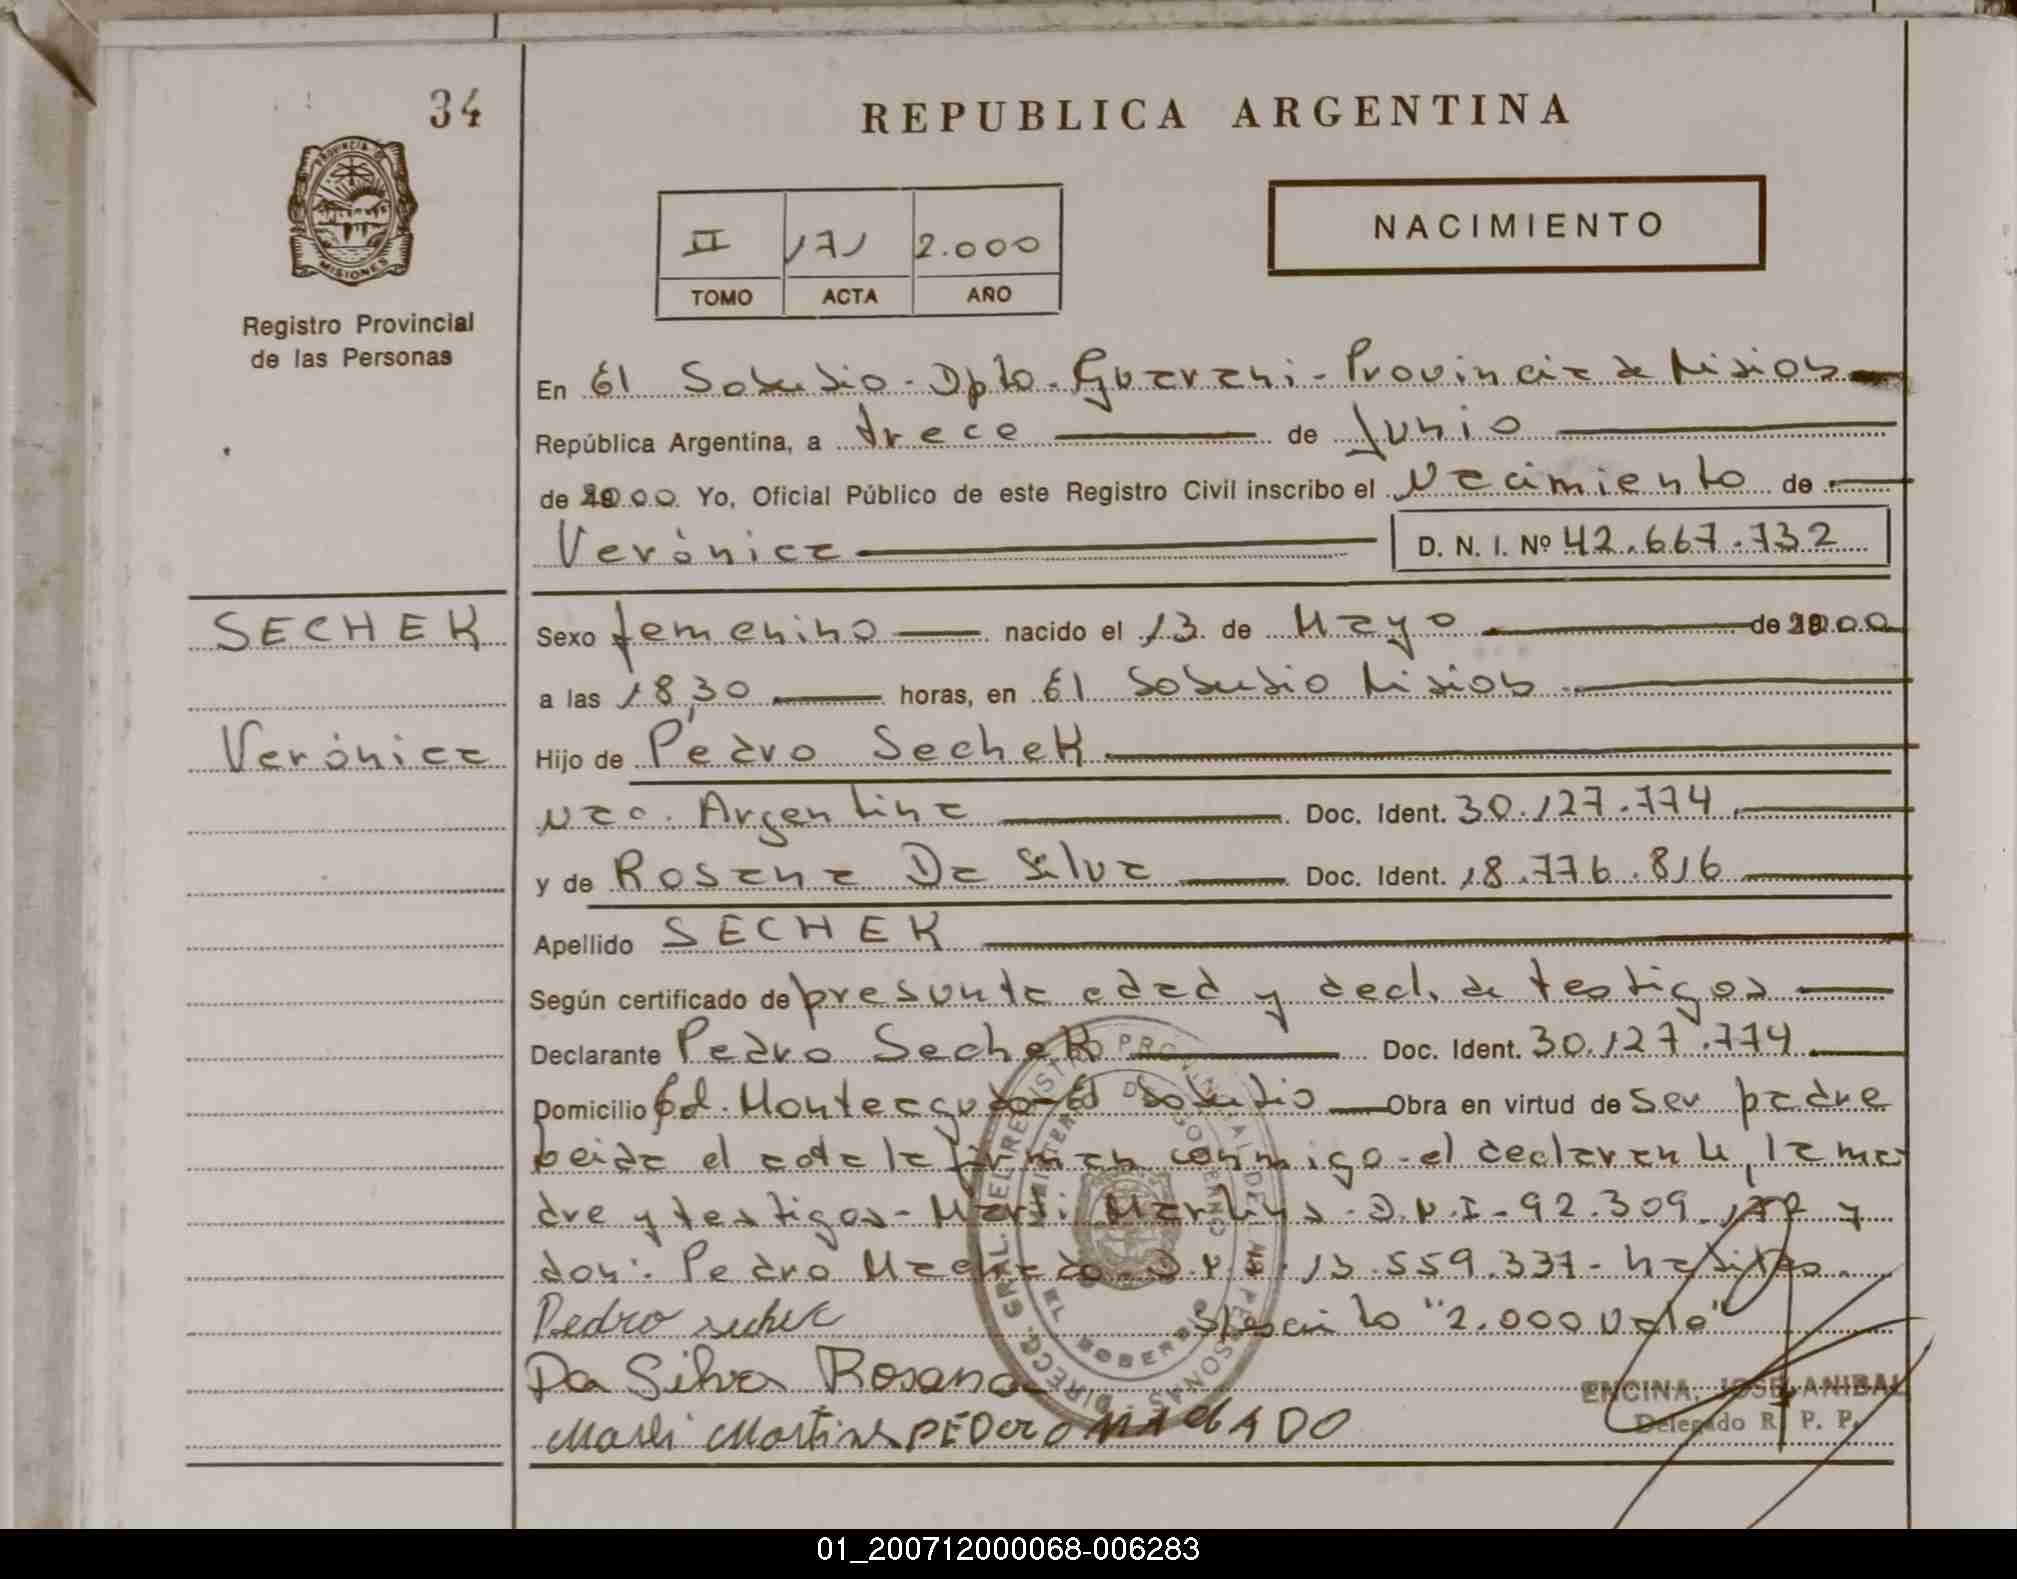 34
REPUBLICA ARGENTINA
PROVINCIA DE
MISIONES
Registro Provincial
de las Personas
II 171 2.000
TOMO ACTA AÑO
NACIMIENTO
En El Soberbio - Dpto - Guarani - Provincia de
República Argentina, a trece de Junio
de 2000 Yo, Oficial Público de este Registro Civil inscribo el Nacimiento de
Verónica D. N. I. Nº 42.667.732
SECHEK
Sexo femenino nacido el 13 de Mayo de 2000
a las 18,30 horas, en El Soberbio
Verónica
Hijo de Pedro Sechek
Nac. Argentina Doc. Ident. 30.127.774
y de Rosana Da Silva Doc. Ident. 18.776.816
Apellido SECHEK
Según certificado de presunta edad y decl. de testigos
Declarante Pedro Sechek Doc. Ident. 30.127.774
Domicilio Col. Monteagudo - El Soberbio Obra en virtud de ser padre
Leida el acta la firman conmigo - el declarante, la ma
dre y testigos - Marli Martins - D.N.I - 92.309 y
don: Pedro Machado D.N.I. 13.559.337 -
Pedro "2.000 Vale"
Da Silva Rosana
ENCINA, JOSE ANIBAL
Delegado R. P. P.
Marli Martins PEDRO MACHADO
01_200712000068-006283